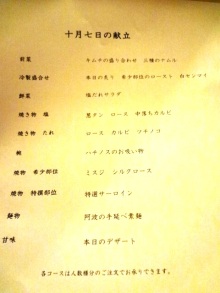 十月七日の献立
前菜 キムチの盛り合わせ 三種のナムル
冷製盛合せ 本日の炙り 希少部位のロースト 白センマイ
鮮菜 塩だれサラダ
焼き物 塩 黒タン ロース 中落ちカルビ
焼き物 たれ ロース カルビ ツチノコ
椀 ハチノスのお吸い物
焼物 希少部位 ミスジ シルクロース
焼物 特撰部位 特選サーロイン
麺物 阿波の手延べ素麺
甘味 本日のデザート
各コースは人数様分のご注文でお承りできます。